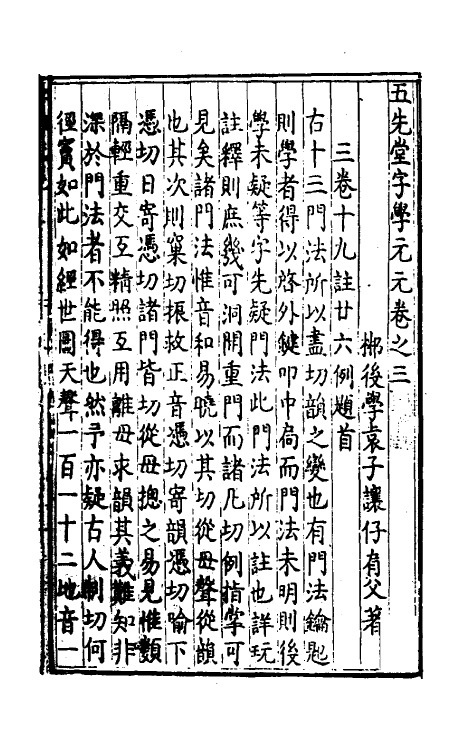 五先堂字學元元卷之三
郴後學袁子讓仔肩父著
三卷十九註廿六例題首
右十三門法所以盡切韻之變也有門法鑰匙
則學者得以啓外鍵叩中扃而門法未明則後
學未疑等字先疑門法此門法所以註也詳玩
註釋則庶幾可洞開重門而諸凡切例指掌可
見矣諸門法惟音和易曉以其切從母聲從韻
也其次則窠切振救正音憑切寄韻憑切喻下
憑切日寄憑切諸門皆切從母摠之易見惟類
隔輕重交互精照互用離母求韻其義難知非
深於門法者不能得也然予亦疑古人制切何
徑竇如此如經世圖天聲一百一十二地音一